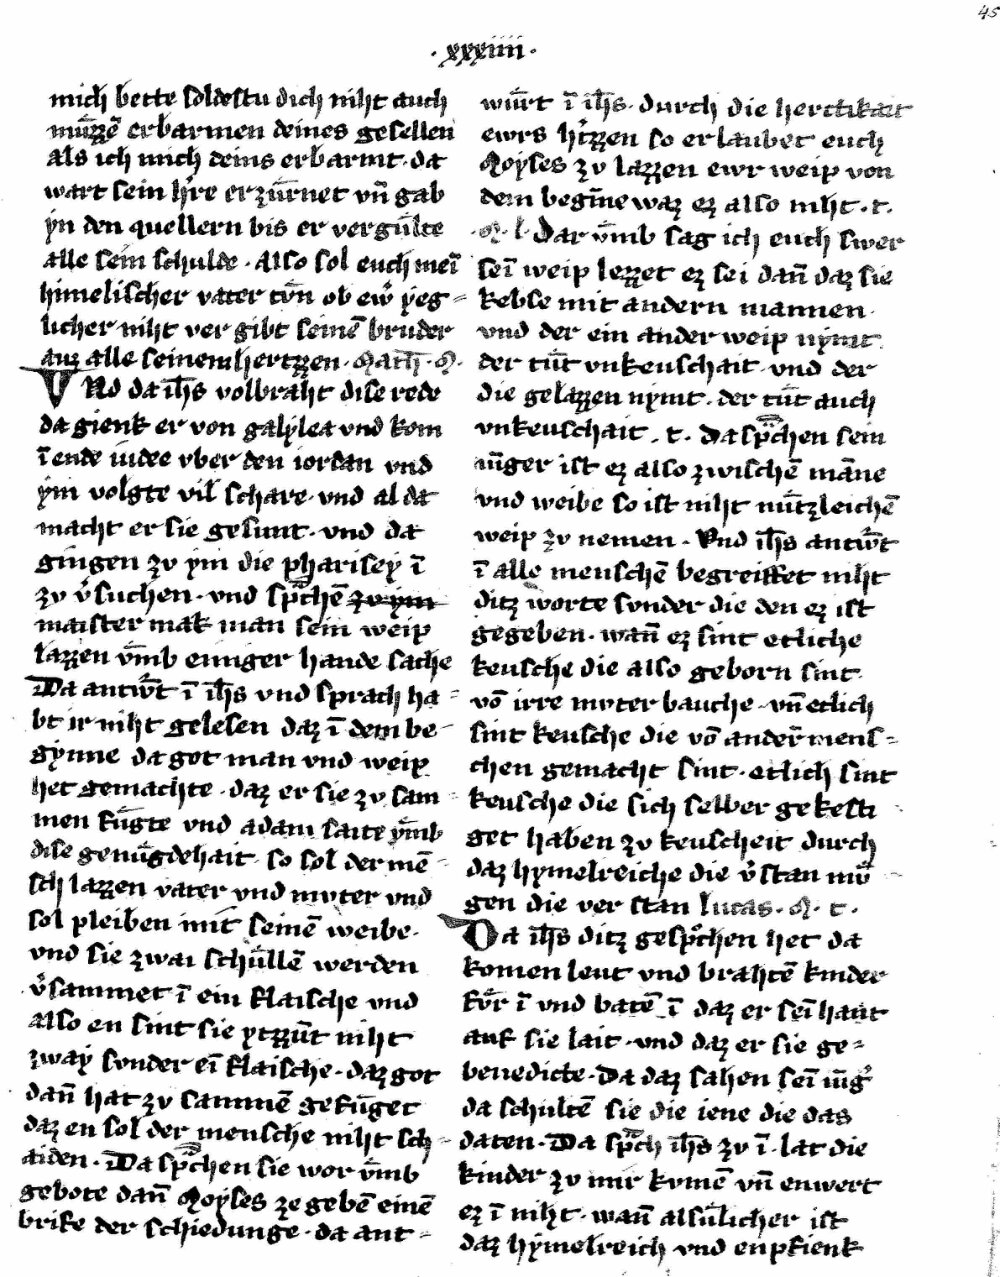 45
· xxxiiii ·
mich bette soldestu dich niht auch
müzzē erbarmen deines gesellen
als ich mich deins erbarmt · da
wart sein h're erzürnet vn̄ gab
yn den quellern bis er vergülte
alle sein schulde · also sol euch mei͂
himelischer vater tvͤn ob ew' yeg=
licher niht ver gibt seinē bruder
auz alle seinem hertzzen · Math · M ·
VNd da ih̄s volbraht dise rede
da gienk er von galylea vnd kom
ī ende iudee vber den iordan vnd
ym volgte vil schare · vnd al da
macht er sie gesunt · vnd da
gingen zv ym die pharisey ī
zv v'suchen · vnd sp̄chē zv ym
maister mak man sein weip
lazzen vm̄b einiger hande sache
Da antw̄t ī ih̄s vnd sprach ha=
bt ir niht gelesen daz ī dem be=
gynne da got man vnd weip
het gemachte · daz er sie zv sam
men fügte vnd adam saite vm̄b
dise genügdehait · so sol der mē
sch lazzen vater vnd mvter vnd
sol pleiben mit seinē weibe ·
vnd sie zwai schüllē werden
v'sammet ī ein flaische vnd
also en sint sie ytzzūt niht
zway sonder eī flaische · daz got
dan̄ hat zv sammē gefüget
daz en sol der mensche niht sch
aiden · Da sp̄chen sie wor vm̄b
gebote dan̄ Moyses ze gebē einē
brife der schiedunge · da ant=
würt ī ih̄s · durch die hertikait
ewrs h'tzzen so erlaubet euch
Moyses zv lazzen ewr weip von
dem begin̄e waz ez also niht · t ·
· M · l · Dar vm̄b sag ich euch swer
seī weip lezzet ez sei dan̄ daz sie
kebse mit andern mannen ·
vnd der ein ander weip nymt
der tüt vnkeuschait · vnd der
die gelazzen nymt · der tüt auch
vnkeuschait · t · Da sp̄chen sein
iūger ist ez also zwischē mān̄e
vnd weibe so ist niht nützleichē
weip zv nemen · Vnd ih̄s antw̄t
ī alle menschē begreiffet niht
ditz worte sonder die den ez ist
gegeben · wan̄ ez sint etliche
keusche die also geborn sint
vō irre mvter bauche · vn̄ etlich
sint keusche die vō ander̄ mens=
chen gemacht sint · etlich sint
keusche die sich selber gekesti
get haben zv keuscheit durch
daz hymelreiche die v'stan mü
gen die ver stan lucas · M · t ·
Da ih̄s ditz gesp'chen het da
komen leut vnd brahtē kinder
für ī vnd batē ī daz er seī haut
auf sie lait · vnd daz er sie ge=
benedicte · Da daz sahen seī iūg'
da schultē sie die iene die das
daten · Da sp̄ch ih̄s zv ī · lat die
kinder zv mir kvmē vn̄ enwert
ez ī niht · wan̄ alsülicher ist
daz hymelreich vnd enpfienk